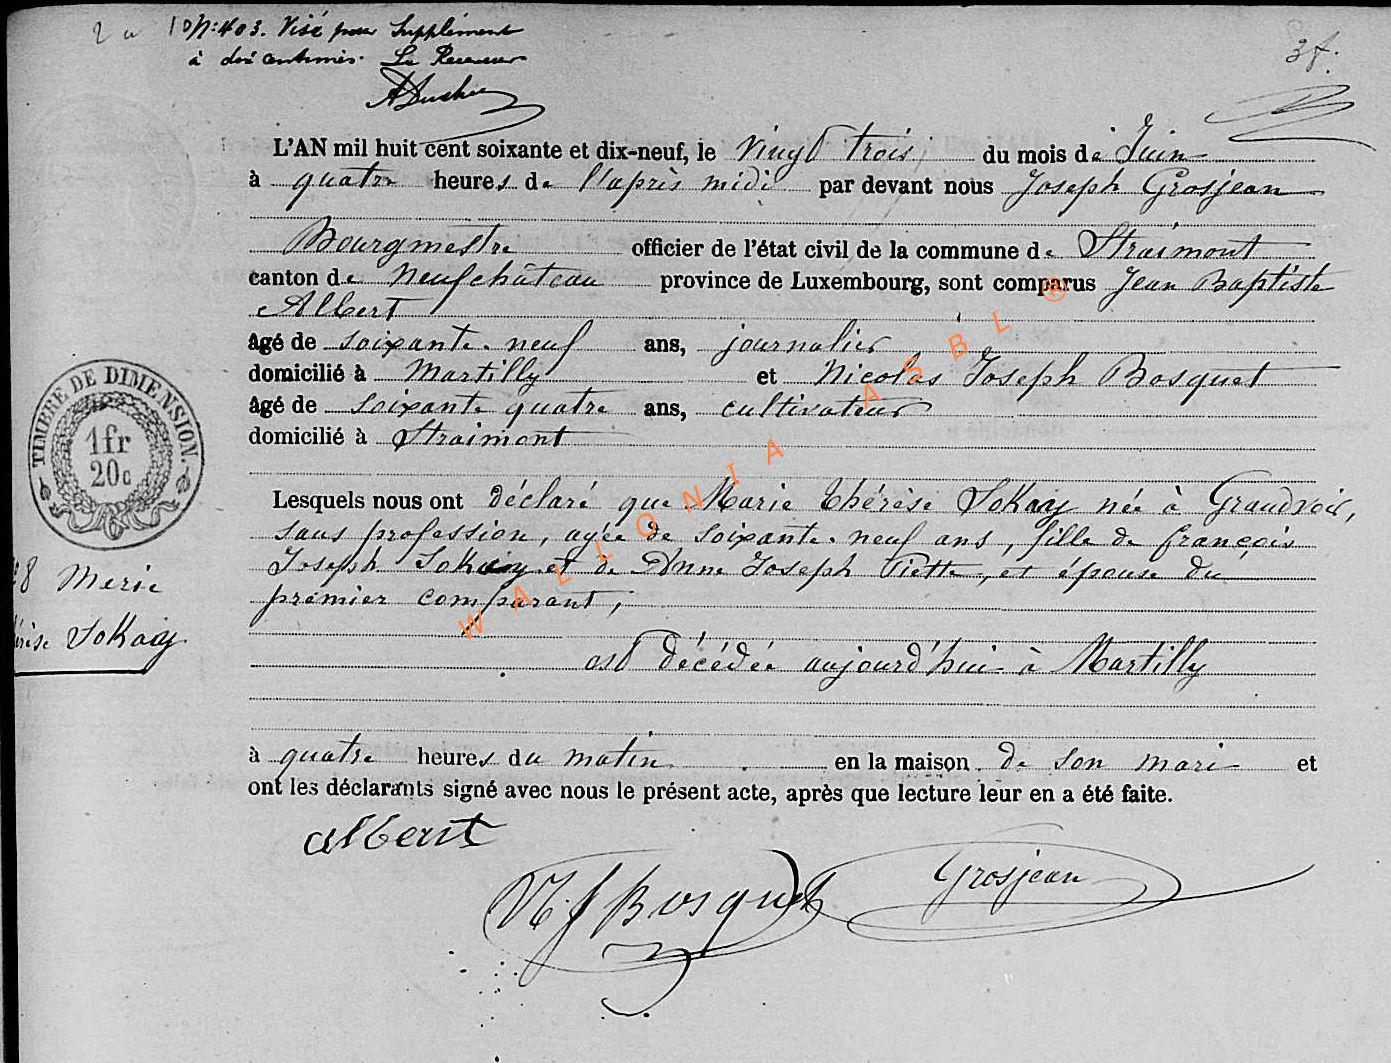 N: 403. Visé pour Supplément
à dix centimes. Le Receveur
3f.
L'AN mil huit cent soixante et dix-neuf, le vingt trois du mois de Juin
à quatre heures de l'après midi par devant nous Joseph Grosjean
Bourgmestre officier de l'état civil de la commune de Straimont
canton de Neufchâteau province de Luxembourg, sont comparus Jean Baptiste
Albert
âgé de soixante-neuf ans, journalier
domicilié à Martilly et Nicolas Joseph Bosquet
âgé de soixante quatre ans, cultivateur
domicilié à Straimont
TIMBRE DE DIMENSION.
1fr
20c
Lesquels nous ont déclaré que Marie Thérèse Sokay née à Grandvoir,
sans profession, agée de soixante-neuf ans, fille de françois
Joseph Sokay et de Anne Joseph Piette, et épouse du
premier comparant,
8 Merie
Sokay
est décédée aujourd'hui à Martilly
à quatre heures du matin en la maison de son mari et
ont les déclarants signé avec nous le présent acte, après que lecture leur en a été faite.
Albert
N. J Bosquet
Grosjean
WALLONIA ASBL ®